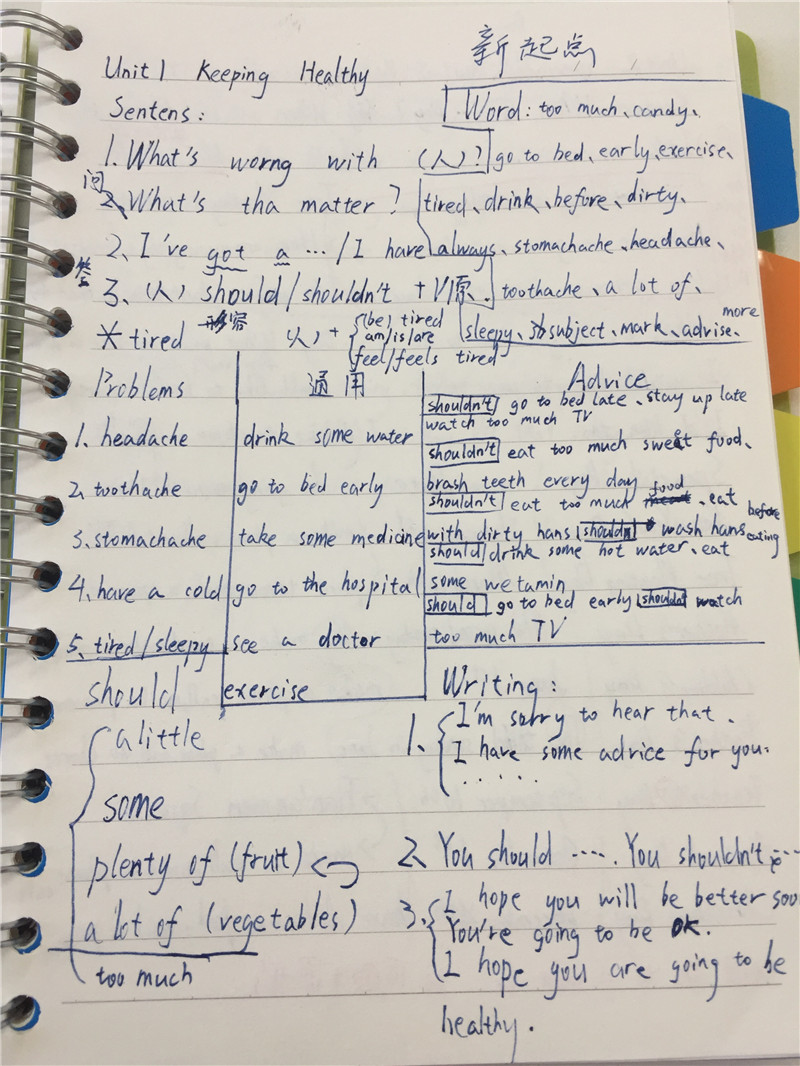 新起点
Unit 1 Keeping Healthy
Sentens:
Word: too much、candy、
1. What's worng with (人)?
go to bed、early、exercise、
问
2、What's tha matter?
tired、drink、before、dirty、
答
2、I've got a … / I have
always、stomachache、headache、
3、(人) should/shouldn't + V原.
toothache、a lot of、
sleepy、subject、mark、advise、more
*tired 形容 (人) + {(be) tired
am/is/are
feel/feels tired
Problems
通用
Advice
1. headache
drink some water
shouldn't go to bed late、stay up late
watch too much TV
shouldn't eat too much sweet food、
2、toothache
go to bed early
brash teeth every day
shouldn't eat too much food、eat
3.stomachache
take some medicine
with dirty hans shouldn wash hans before eating
should drink some hot water、eat
4、have a cold
go to the hospital
some wetamin
should go to bed early shouldn't watch
5、tired/sleepy
see a doctor
too much TV
should
exercise
a little
some
plenty of (fruit)
a lot of (vegetables)
too much
Writing:
1、{I'm sorry to hear that.
I have some advice for you.
......
2、You should ····. You shouldn't ····
3.{I hope you will be better soo
You're going to be OK.
I hope you are going to be
healthy.